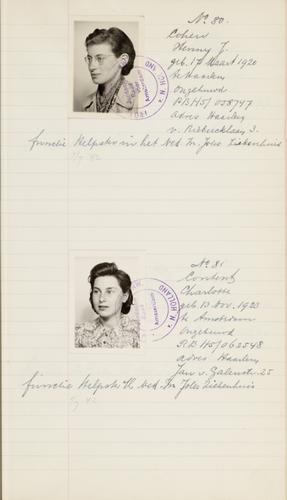 No 80.
Cohen
Henny J.
geb. 17 Maart 1920
te Haarlem
Ongehuwd
P.B H5/ 038747
adres Haarlem
v. Riebecklaan 3.
functie Helpster in het Ned. Isr. Joles Ziekenhuis
No 81
Content
Charlotte
geb 13 Nov. 1920
te Amsterdam
Ongehuwd
P.B H5/062548
adres Haarlem
Jan v. Galenstr. 25
functie Helpster Ned. Isr. Joles Ziekenhuis
HOLLAND